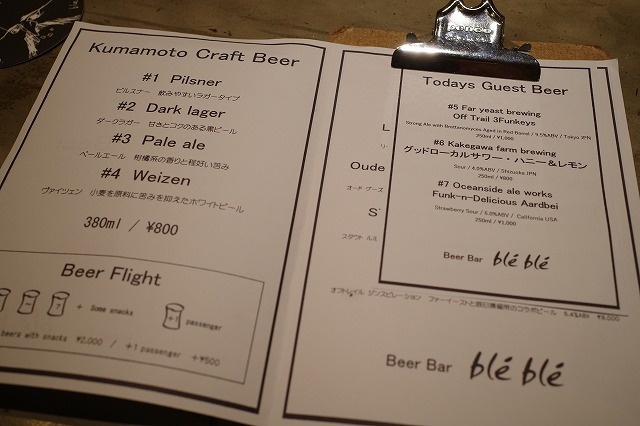 Kumamoto Craft Beer
#1 Pilsner
ピルスナー 飲みやすいラガータイプ
#2 Dark lager
ダークラガー 甘さとコクのある黒ビール
#3 Pale ale
ペールエール 柑橘系の香りと程好い苦み
#4 Weizen
ヴァイツェン 小麦を原料に苦みを抑えたホワイトビール
380ml / ¥800
Beer Flight
+ Some snacks
+1 passenger
beers with snacks ¥2,000 / +1 passenger +¥500
Todays Guest Beer
#5 Far yeast brewing
Off Trail 3Funkeys
Strong Ale with Brettanomyces Aged in Red Barrel / 9.5%ABV / Tokyo JPN
250ml / ¥1,000
#6 Kakegawa farm brewing
グッドローカルサワー・ハニー&レモン
Sour / 4.0%ABV / Shizuoka JPN
250ml / ¥800
#7 Oceanside ale works
Funk-n-Delicious Aardbei
Strawberry Sour / 5.0%ABV / California USA
250ml / ¥1,000
Beer Bar blé blé
L
Oude
オード グーズ
S
スタウト ルミ
オフトレイル ジンスピレーション ファーイーストと辰巳蒸留所のコラボビール 5.4%ABV ¥8,000
Beer Bar blé blé